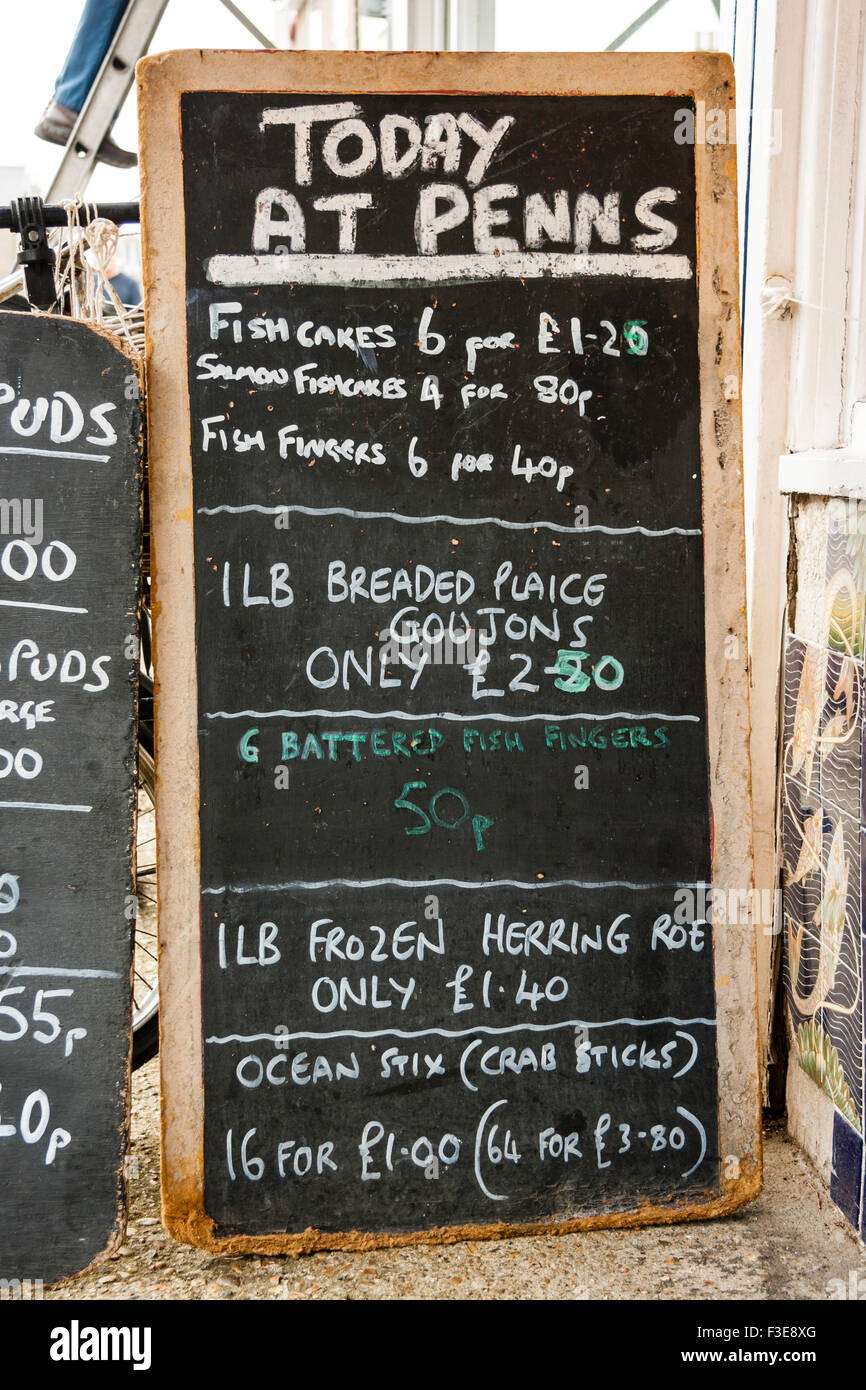 Today
AT PENNS
FISHCAKES 6 for £1-25
SALMON FISHCAKES 4 FOR 80p
FISH FINGERS 6 FOR 40p
1LB BREADED PLAICE
GOUJONS
ONLY £2-50
6 BATTERED FISH FINGERS
50p
1LB FROZEN HERRING ROE
ONLY £1.40
OCEAN STIX (CRAB STICKS)
16 FOR £1.00 (64 FOR £3-80)
PUDS
00
SPUDS
RGE
00
65p
20p
alamy stock photo
F3E8XG
www.alamy.com